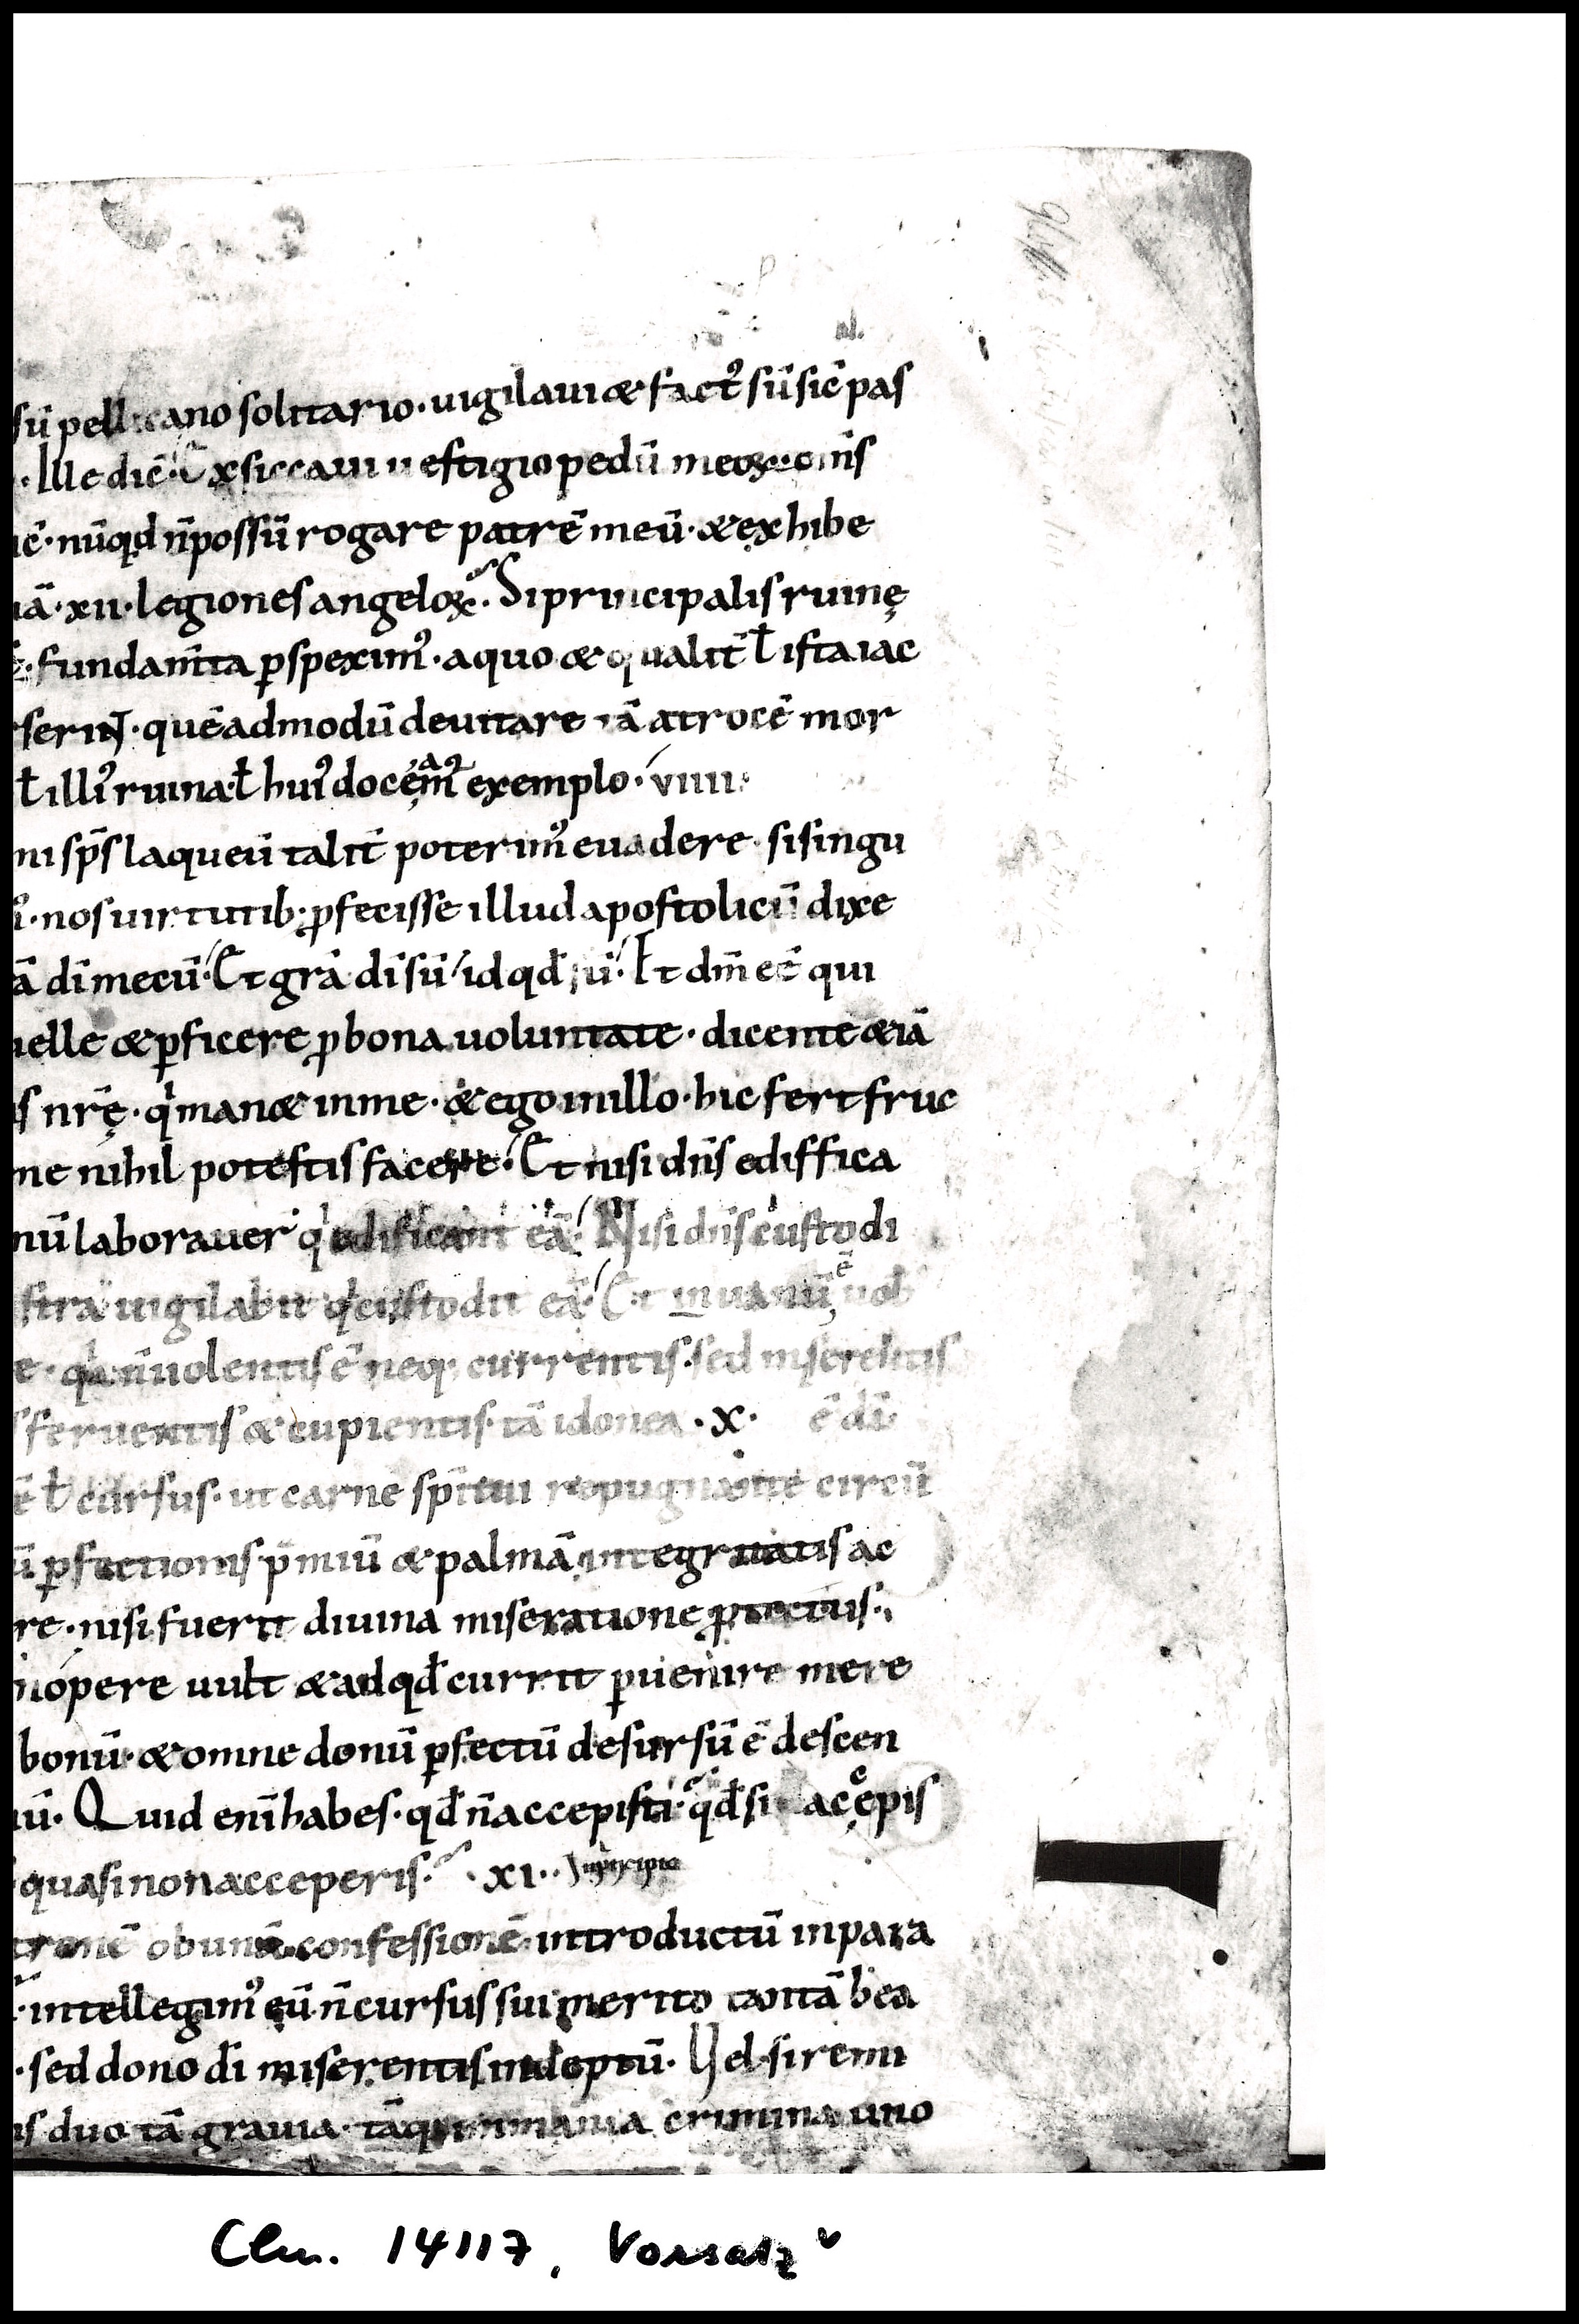 sū pellicano solitario · uigilaui & fact᾽ sū sic̄ pas
· Ille dic̄ · Exsiccaui uestigio pedū meoꝝ · om̄s
ic̄ · nūqd n̄ possū rogare patrē meū · & exhibe
uā · xii · legiones angeloꝝ · Si principalis ruinę
· fundam̄ta ꝑspexim᾽ · a quo & qualit̄ ƚ ista iac
serinꞇ · quēadmodū deuitare iā atrocē mor
ƚ illi᾽ ruina ƚ hui᾽ docęam᾽ exemplo · viiii ·
ni sp̄s laqueū talit̄ poterim᾽ euadere · si singu
nos uirtutib; ꝓfecisse illud apostolicū dixe
ā dī mecū · Et grā dī sū id qd̄ sū · Et dm̄ eē qui
uelle & ꝑficere ꝓ bona uoluntate · dicente & iā
is nr̄ę · qͥ man& in me · & ego in illo · hic fert fruc
me nihil potestis facere · Et nisi dn̄s ediffica
nū laborauer̄ qͥ edificant eā · Nisi dn̄s custodi
strā uigilabit qͥ custodit eā · Et in uanū ē uob
e · qͥa n̄ uolentis ē neq; currentis · sed miserentis
feruentis & cupientis tā idonea · x · ē dī ·
ē ƚ cursus · ut carne spīritui repugnante circū
ū ꝑfectionis p̄miū & palmā integritatis ac
re · nisi fuerit diuina miseratione ꝓtectus ·
nopere uult & ad qd̄ currit ꝑuenire mere
bonū · & omne donū ꝑfectū desursū ē descen
nū · Quid enī habes · qd̄ n̄ accepisti · qd̄ si accepis
quasi non acceperis · · xi · · In principio
tronē ob unā confessionē introductū in para
· intellegim᾽ eū n̄ cursus sui merito tantā bea
· sed dono dī miserentis indeptū · Uel si remi
is duo tā grauia · tāq; inmania crimina uno
Clm. 14117, Vorsatz v